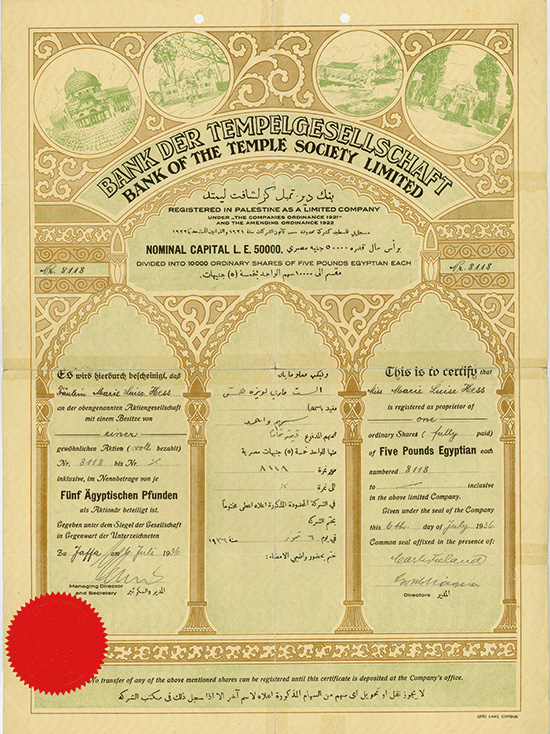 BANK DER TEMPELGESELLSCHAFT
BANK OF THE TEMPLE SOCIETY LIMITED
بنك در تمبل كزلشافت ليمتد
REGISTERED IN PALESTINE AS A LIMITED COMPANY
UNDER „THE COMPANIES ORDINANCE 1921"
AND THE AMENDING ORDINANCE 1922
NOMINAL CAPITAL L. E. 50000. برأس مال قدره ٥٠٠٠٠ جنيه مصري
DIVIDED INTO 10000 ORDINARY SHARES OF FIVE POUNDS EGYPTIAN EACH
مقسم الى ١٠٠٠٠ سهم الواحد بخمسة (٥) جنيهات.
Nr. 8118
Nr. 8118
Es wird hierdurch bescheinigt, daß
Fräulein Marie Luise Hess
an der obengenannten Aktiengesellschaft
mit einem Besitze von
einer
gewöhnlichen Aktien (voll bezahlt)
Nr. 8118 bis Nr. ⁒
inklusive, im Nennbetrage von je
Fünf Ägyptischen Pfunden
als Aktionär beteiligt ist.
Gegeben unter dem Siegel der Gesellschaft
in Gegenwart der Unterzeichneten
Zu Jaffa am 6. Juli 1936
Managing Director
and Secretary
المدير والسكرتير
وليكن معلوما بان
الست ماري لويزه هس
سهم واحد
منها الواحد خمسة (٥) جنيهات مصرية
نمرة ٨١١٨
الى نمرة
في الشركة المحدودة المذكورة اعلاه اعطي مختوماً
بختم الشركة
في يوم ٦ تموز سنة ١٩٣٦
This is to certify that
Miss Marie Luise Hess
is registered as proprietor of
one
ordinary Shares (fully paid)
of Five Pounds Egyptian each
numbered 8118
to ⁒ inclusive
in the above limited Company.
Given under the seal of the Company
this 6th day of July 1936.
Common seal affixed in the presence of:
Directors المدير
No transfer of any of the above mentioned shares can be registered until this certificate is deposited at the Company's office.
لا يجوز نقل او تحويل اي سهم من السهام المذكورة اعلاه لاسم آخر الا اذا سجل ذلك في مكتب الشركة